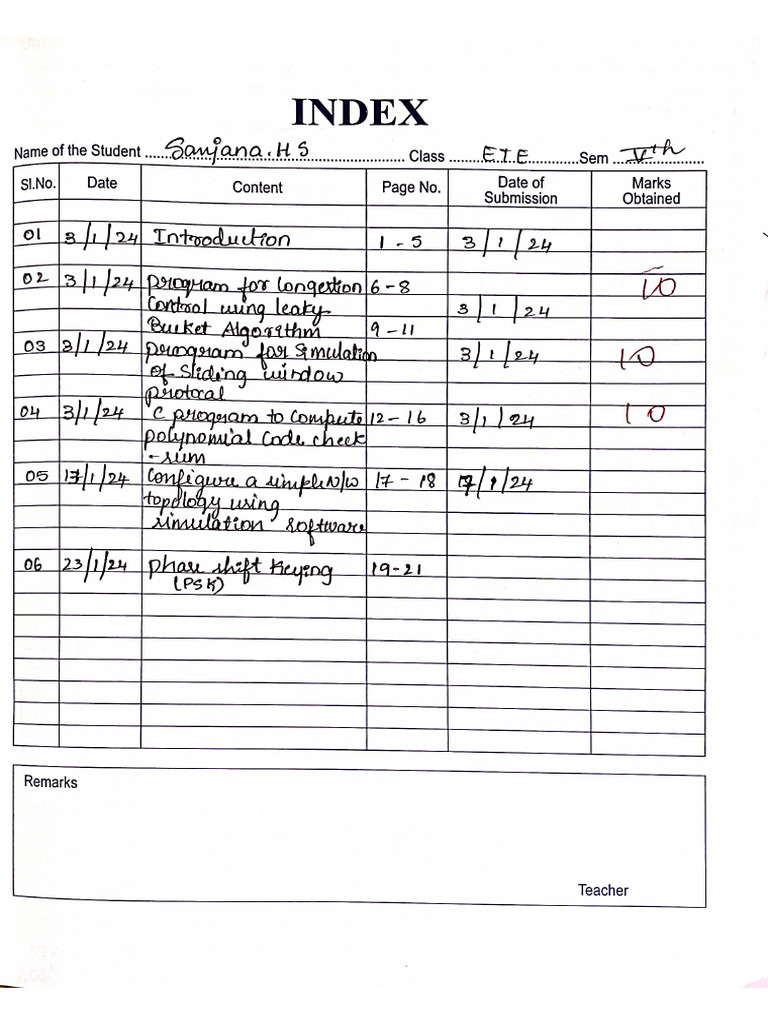 INDEX
Name of the Student Sanjana. H S Class E.T.E Sem Vth
Sl.No. Date Content Page No. Date of Submission Marks Obtained
01 3/1/24 Introduction 1 - 5 3/1/24
02 3/1/24 program for Congestion 6 - 8 10
Control using leaky 3/1/24
Bucket Algorithm 9 - 11
03 3/1/24 program for Simulation 3/1/24 10
of Sliding window
protocal
04 3/1/24 C program to Compute 12 - 16 3/1/24 10
polynomial Code check
- sum
05 17/1/24 Configure a simple N/W 17 - 18 17/1/24
topology using
simulation software
06 23/1/24 phase shift Keying 19 - 21
(PSK)
Remarks
Teacher